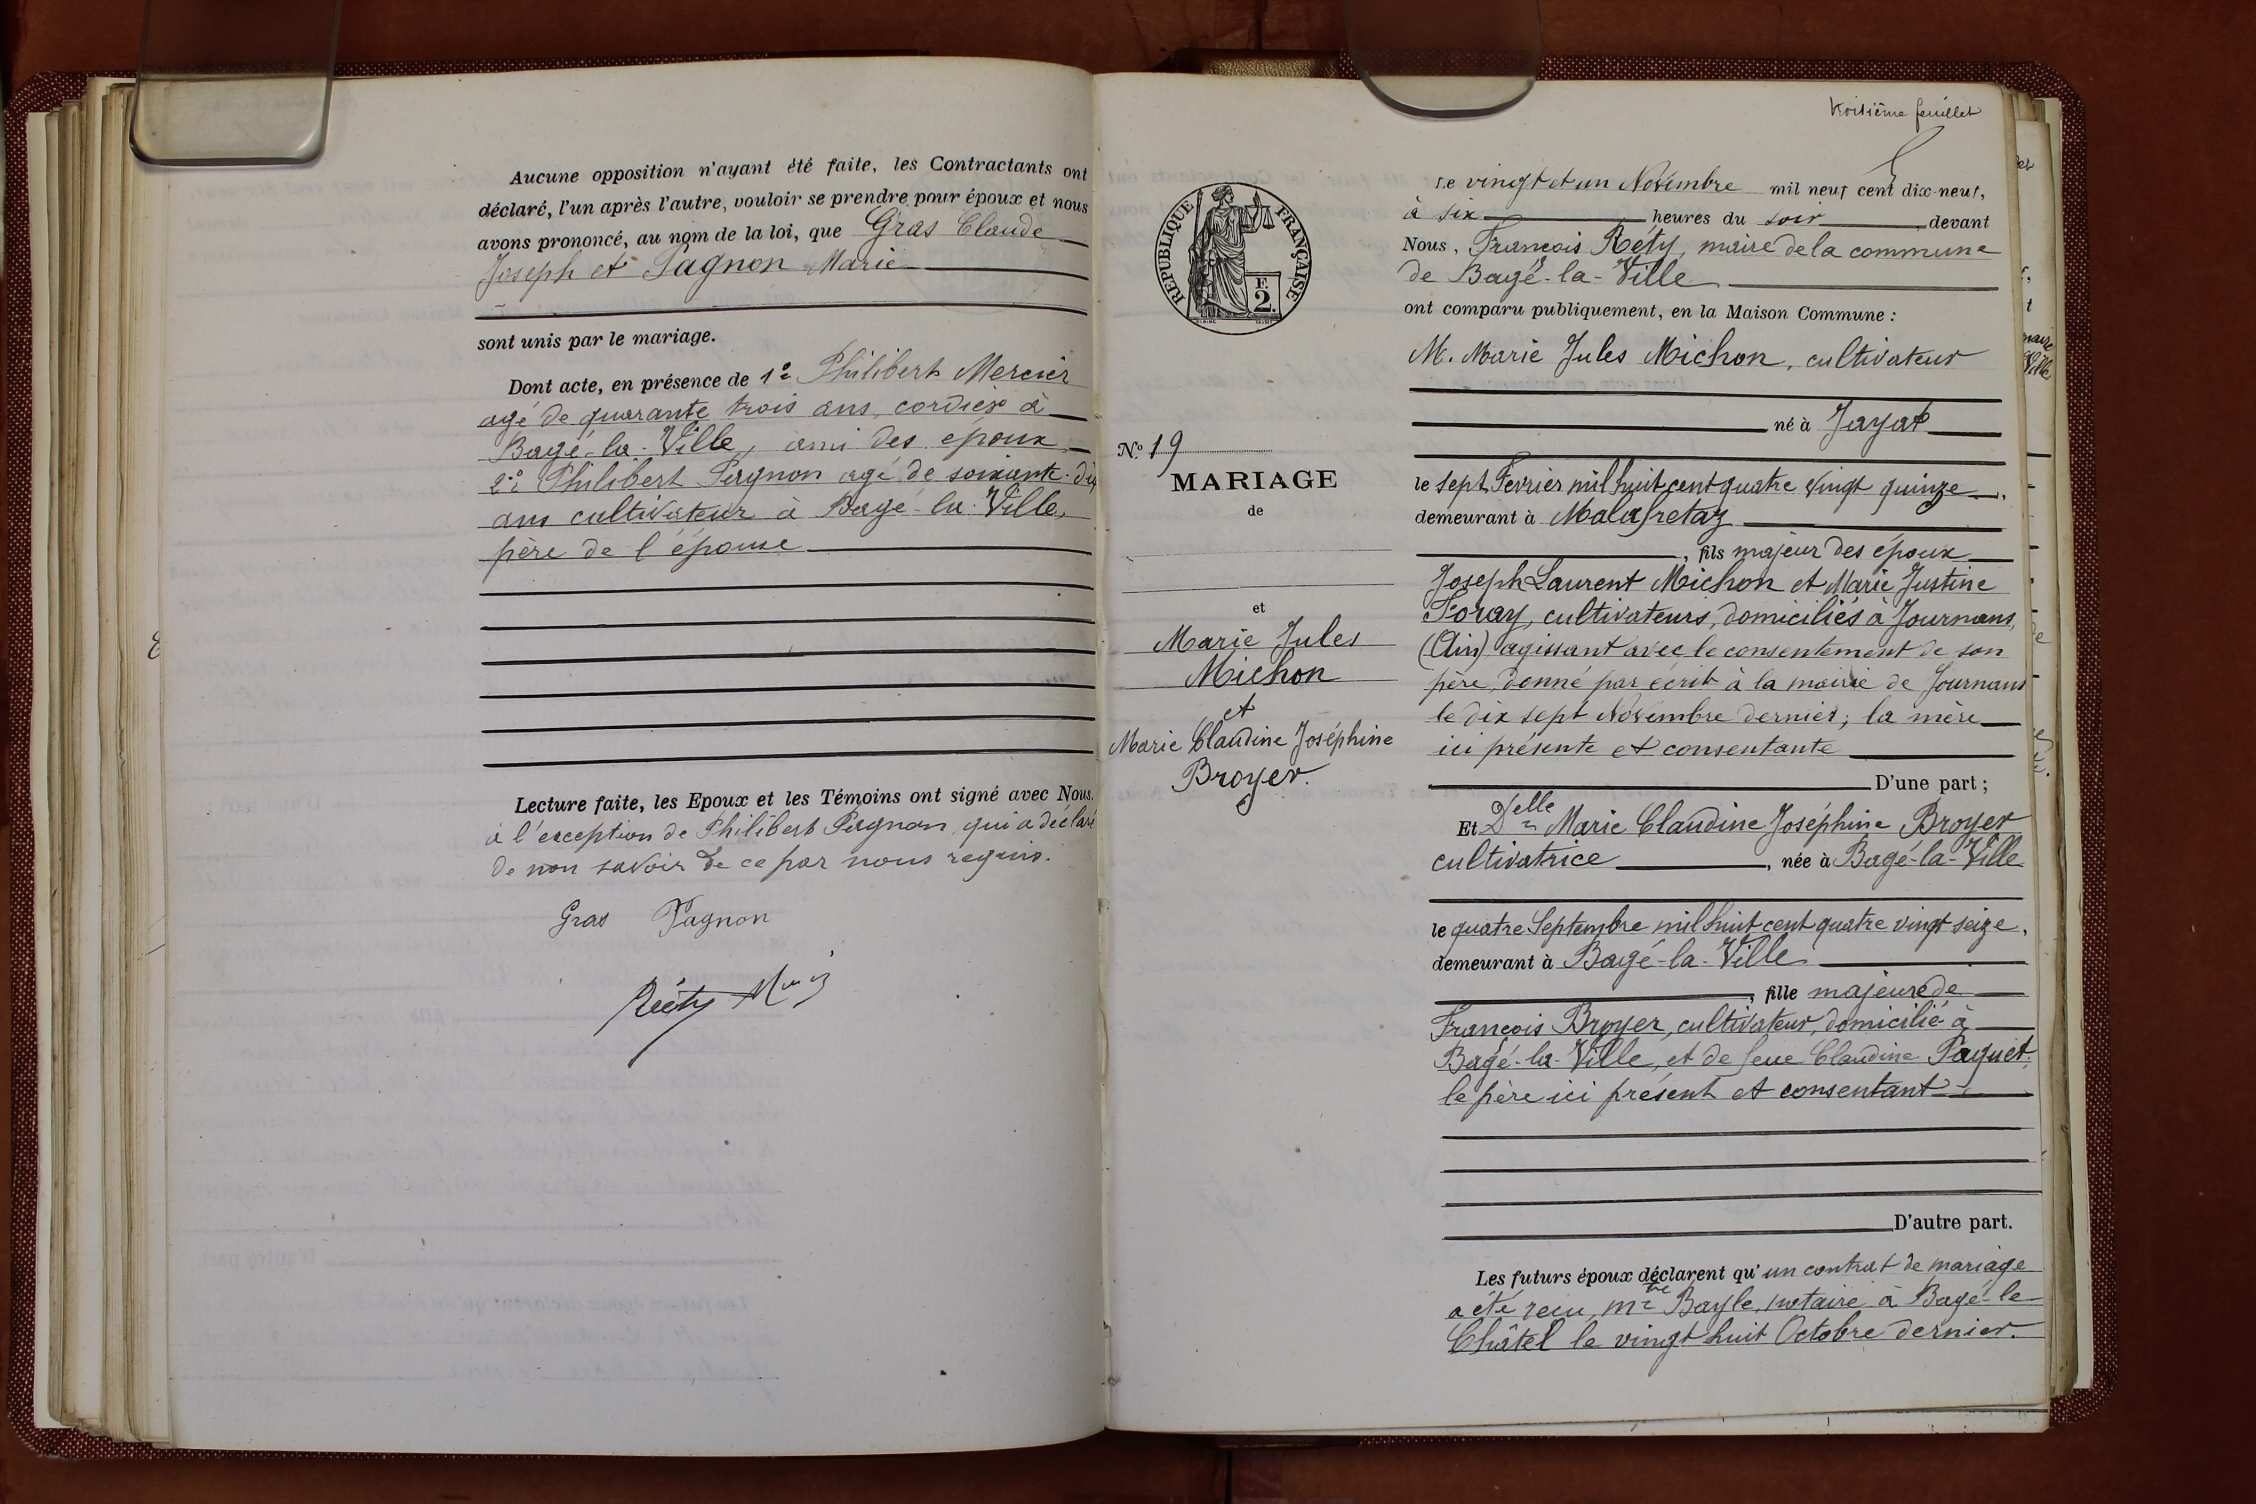 Aucune opposition n'ayant été faite, les Contractants ont
déclaré, l'un après l'autre, vouloir se prendre pour époux et nous
avons prononcé, au nom de la loi, que Gras Claude
Joseph et Pagnon Marie
sont unis par le mariage.
Dont acte, en présence de 1° Philibert Mercier
agé de quarante trois ans, cordier à
Bagé-la-Ville, ami des époux
2° Philibert Pagnon agé de soixante-dix
ans cultivateur à Bagé-la-Ville,
père de l'épouse
Lecture faite, les Epoux et les Témoins ont signé avec Nous.
à l'exception de Philibert Pagnon, qui a déclaré
de non savoir de ce par nous requis.
Gras Pagnon
Réty
troisième feuillet
RÉPUBLIQUE FRANÇAISE
F.
2.
N° 19
MARIAGE
de
et
Marie Jules
Michon
et
Marie Claudine Joséphine
Broyer.
Le vingt et un Novembre mil neuf cent dix-neuf,
à six heures du soir, devant
Nous, François Réty, maire de la commune
de Bagé-la-Ville
ont comparu publiquement, en la Maison Commune :
M. Marie Jules Michon, cultivateur
né à Jayat
le sept Fevrier mil huit cent quatre vingt quinze,
demeurant à Malafretaz
, fils majeur des époux
Joseph Laurent Michon et Marie Justine
Foray, cultivateurs, domiciliés à Journans,
(Ain) agissant avec le consentement de son
père, donné par écrit à la mairie de Journans
le dix sept Novembre dernier; la mère
ici présente et consentante
D'une part ;
Et Delle Marie Claudine Joséphine Broyer
cultivatrice, née à Bagé-la-Ville
le quatre Septembre mil huit cent quatre vingt seize,
demeurant à Bagé-la-Ville
, fille majeure de
François Broyer, cultivateur, domicilié à
Bagé-la-Ville, et de feue Claudine Paquet,
le père ici présent et consentant
D'autre part.
Les futurs époux déclarent qu'un contrat de mariage
a été reçu, Mtre Bayle, notaire à Bagé-le-
Châtel le vingt huit Octobre dernier.